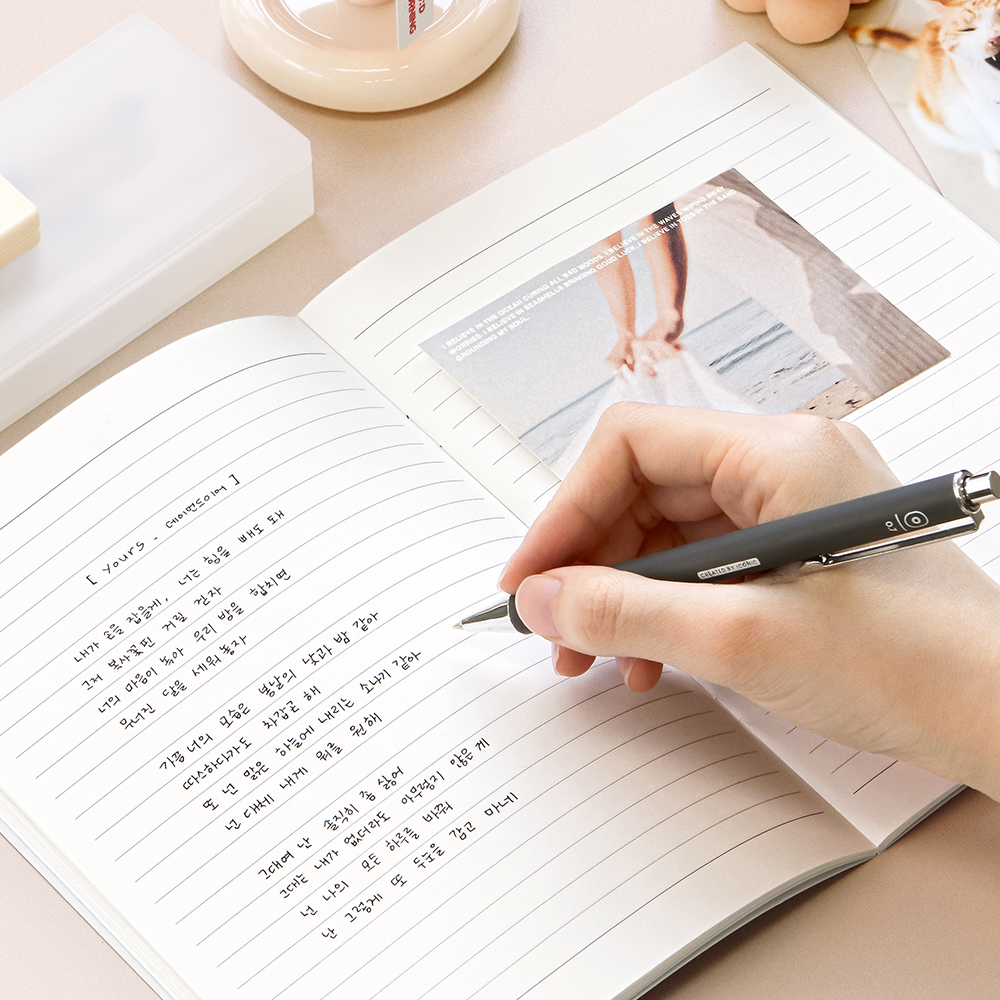 [ Yours - 데이먼드이어 ]
내가 손을 잡을게, 너는 힘을 빼도 돼
그저 복사꽃핀 거릴 걷자
너의 마음이 녹아 우리 밤을 합치면
무너진 달을 세워 놓자
기끔 너의 모습은 봄날의 낮과 밤 같아
따스하다가도 차갑곤 해
또 넌 맑은 하늘에 내리는 소나기 같아
넌 대체 내게 뭐를 원해
그대여 난 솔직히 좀 싫어
그대는 내가 없더라도 아무렇지 않은 게
넌 나의 모든 하루를 바꿔
난 그렇게 또 두눈을 감고 마네
I BELIEVE IN THE OCEAN CURING ALL BAD MOODS. I BELIEVE IN THE WAVES WIPING AWAY
WORRIES. I BELIEVE IN SEASHELLS BRINGING GOOD LUCK. I BELIEVE IN TOES IN THE SAND
GROUNDING MY SOUL.
CREATED BY ICONIC
0.7